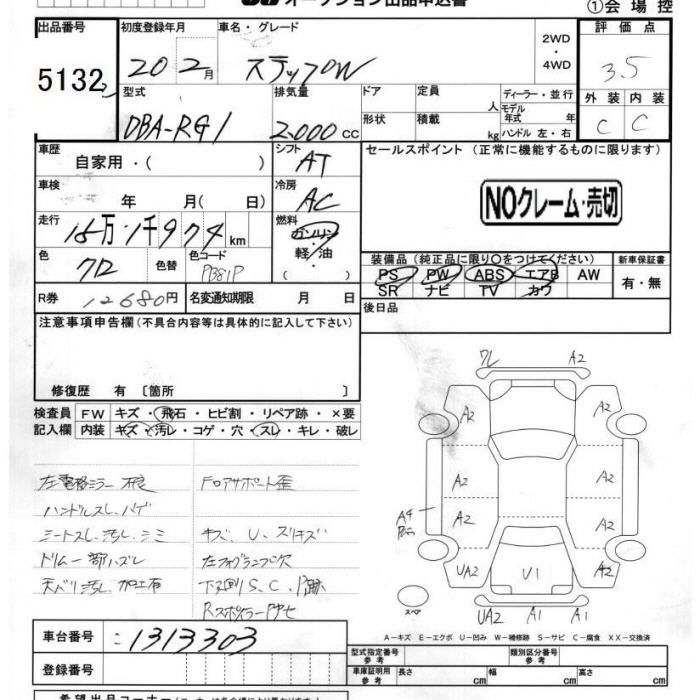 オークション出品申込書 ①会場控
出品番号 初度登録年月 車名・グレード 評価点
5132 20 2月 ステップW 2WD ・ 4WD 3.5
型式 排気量 ドア 定員 人 ディーラー・並行 外装 内装
DBA-RG1 2.000cc 形状 積載 kg モデル年式 年式 ハンドル 左・右 C C
車歴 自家用・( ) シフト AT セールスポイント (正常に機能するものに限ります)
車検 年 月( 日) 冷房 AC NOクレーム・売切
走行 15万1千974km 燃料 ガソリン・軽油 ( )
装備品 (純正品に限り○をつけてください) 新車保証書
色 クロ 色替 色コード PB81P PS PW ABS エアB AW 有・無
SR ナビ TV カワ
R券 12680円 名変通知期限 月 日 後日品
注意事項申告欄 (不具合内容等は具体的に記入して下さい)
修復歴 有 〔箇所 〕
検査員 FW キズ・飛石・ヒビ割・リペア跡・×要
記入欄 内装 キズ・汚レ・コゲ・穴・スレ・キレ・破レ
左電格ミラー不良 Fロアサポート歪
ハンドルスレ、ハゲ
シートスレ、汚レ、シミ キズ、U、スリキズ
トリム一部ハズレ 左フォグランプ穴
天バリ汚レ、加工有 下廻りS、C、跡
Rスポイラー
フレ A2
A2 A2
A2 A2
A2 A2
A4
UA2 U1 A2
スペア UA2 A1 A1
A-キズ E-エクボ U-凹み W-補修跡 S-サビ C-腐食 XX-交換済
車台番号 : 1313303
型式指定番号 参考 類別区分番号 参考
登録番号 車庫証明用 参考 長さ cm 幅 cm 高さ cm
希望出品コーナー